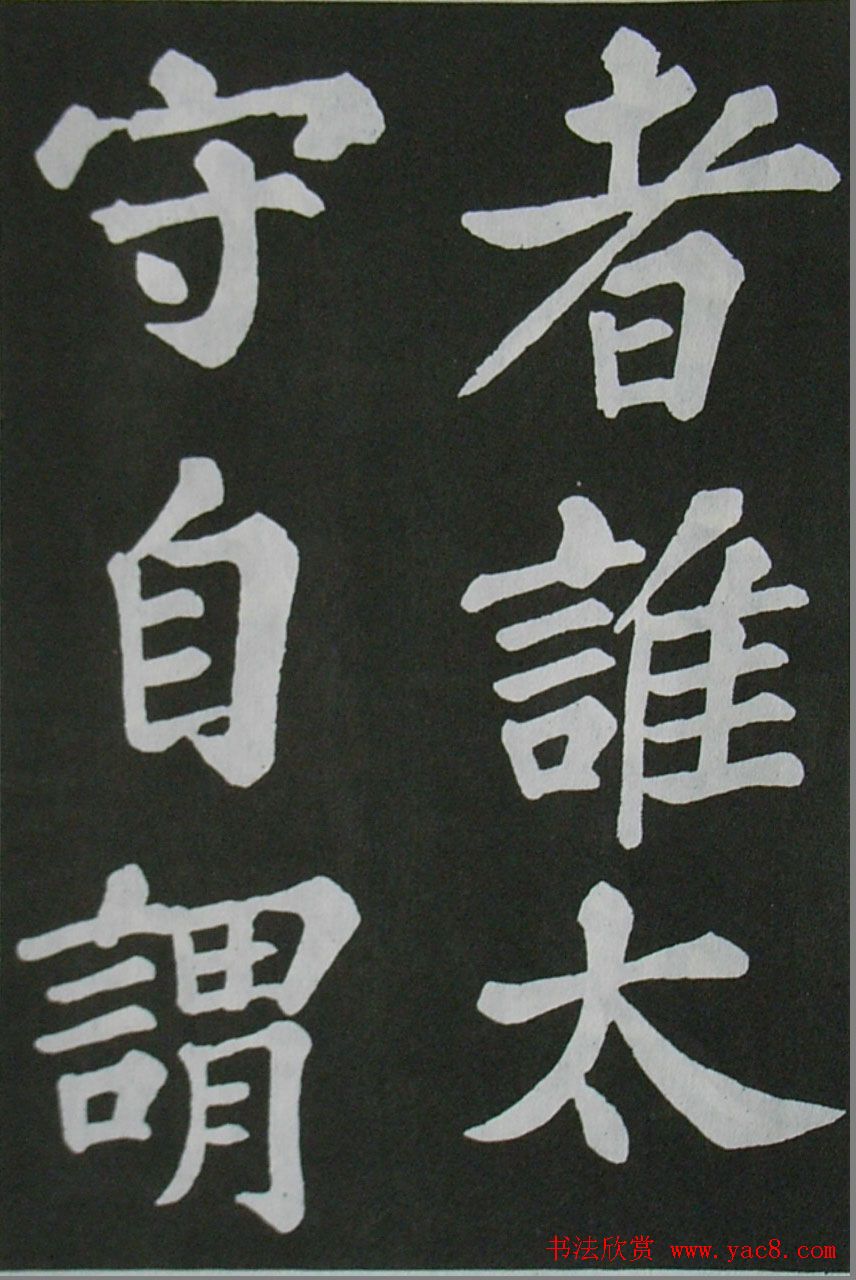 者誰太
守自謂
书法欣赏 www.yac8.com